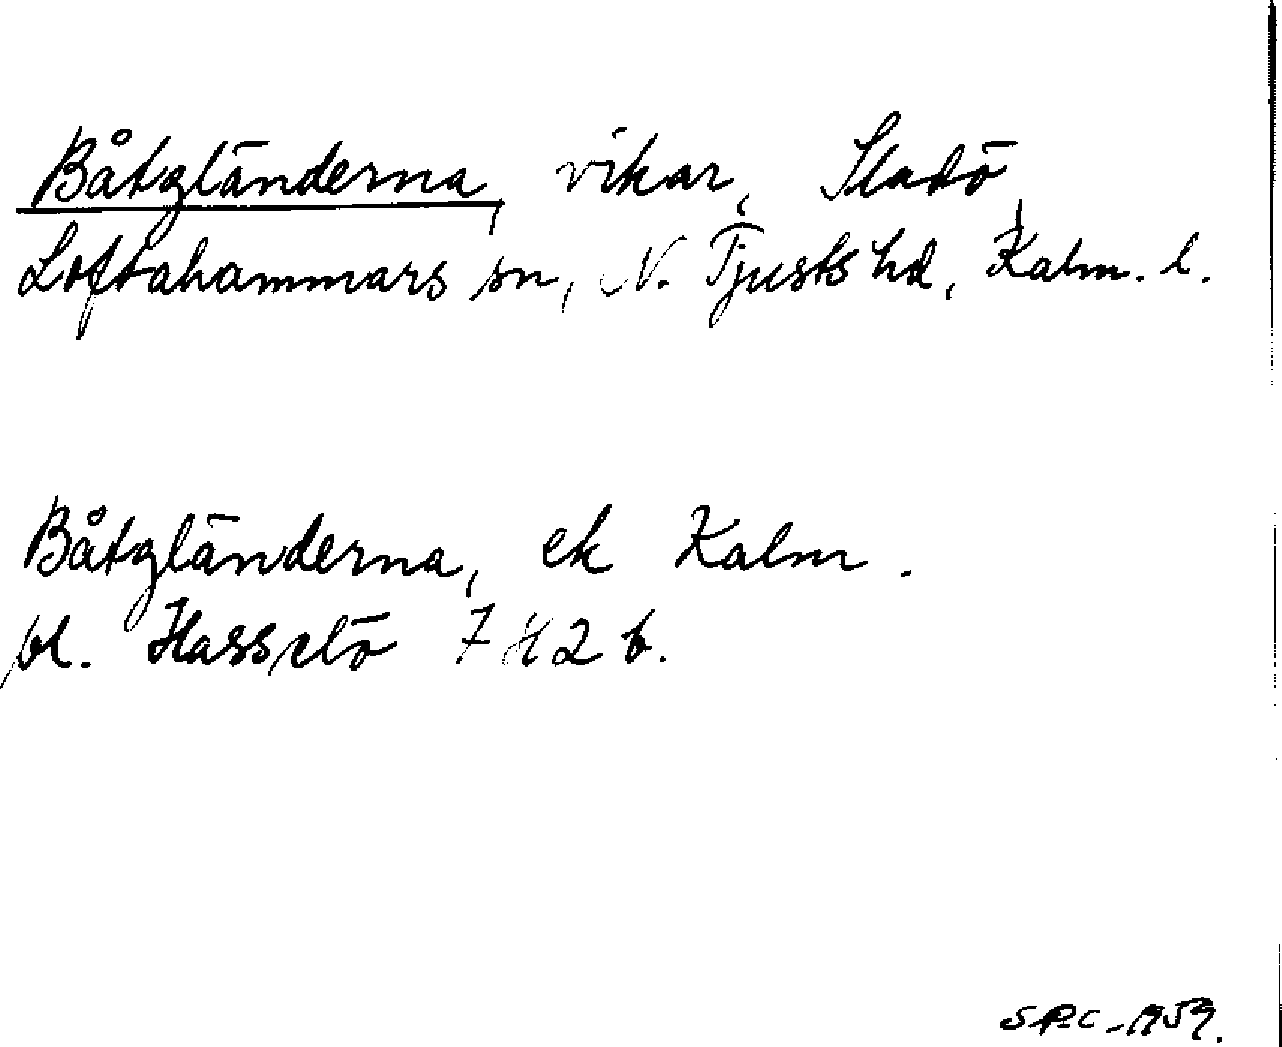 Båtgländerna, vikar, Sladö,
Loftahammars sn, N. Tjusts hd, Kalm. l.
Båtgländerna, ek Kalm.
bl. Hasselö 7 H 2 b.
1959.